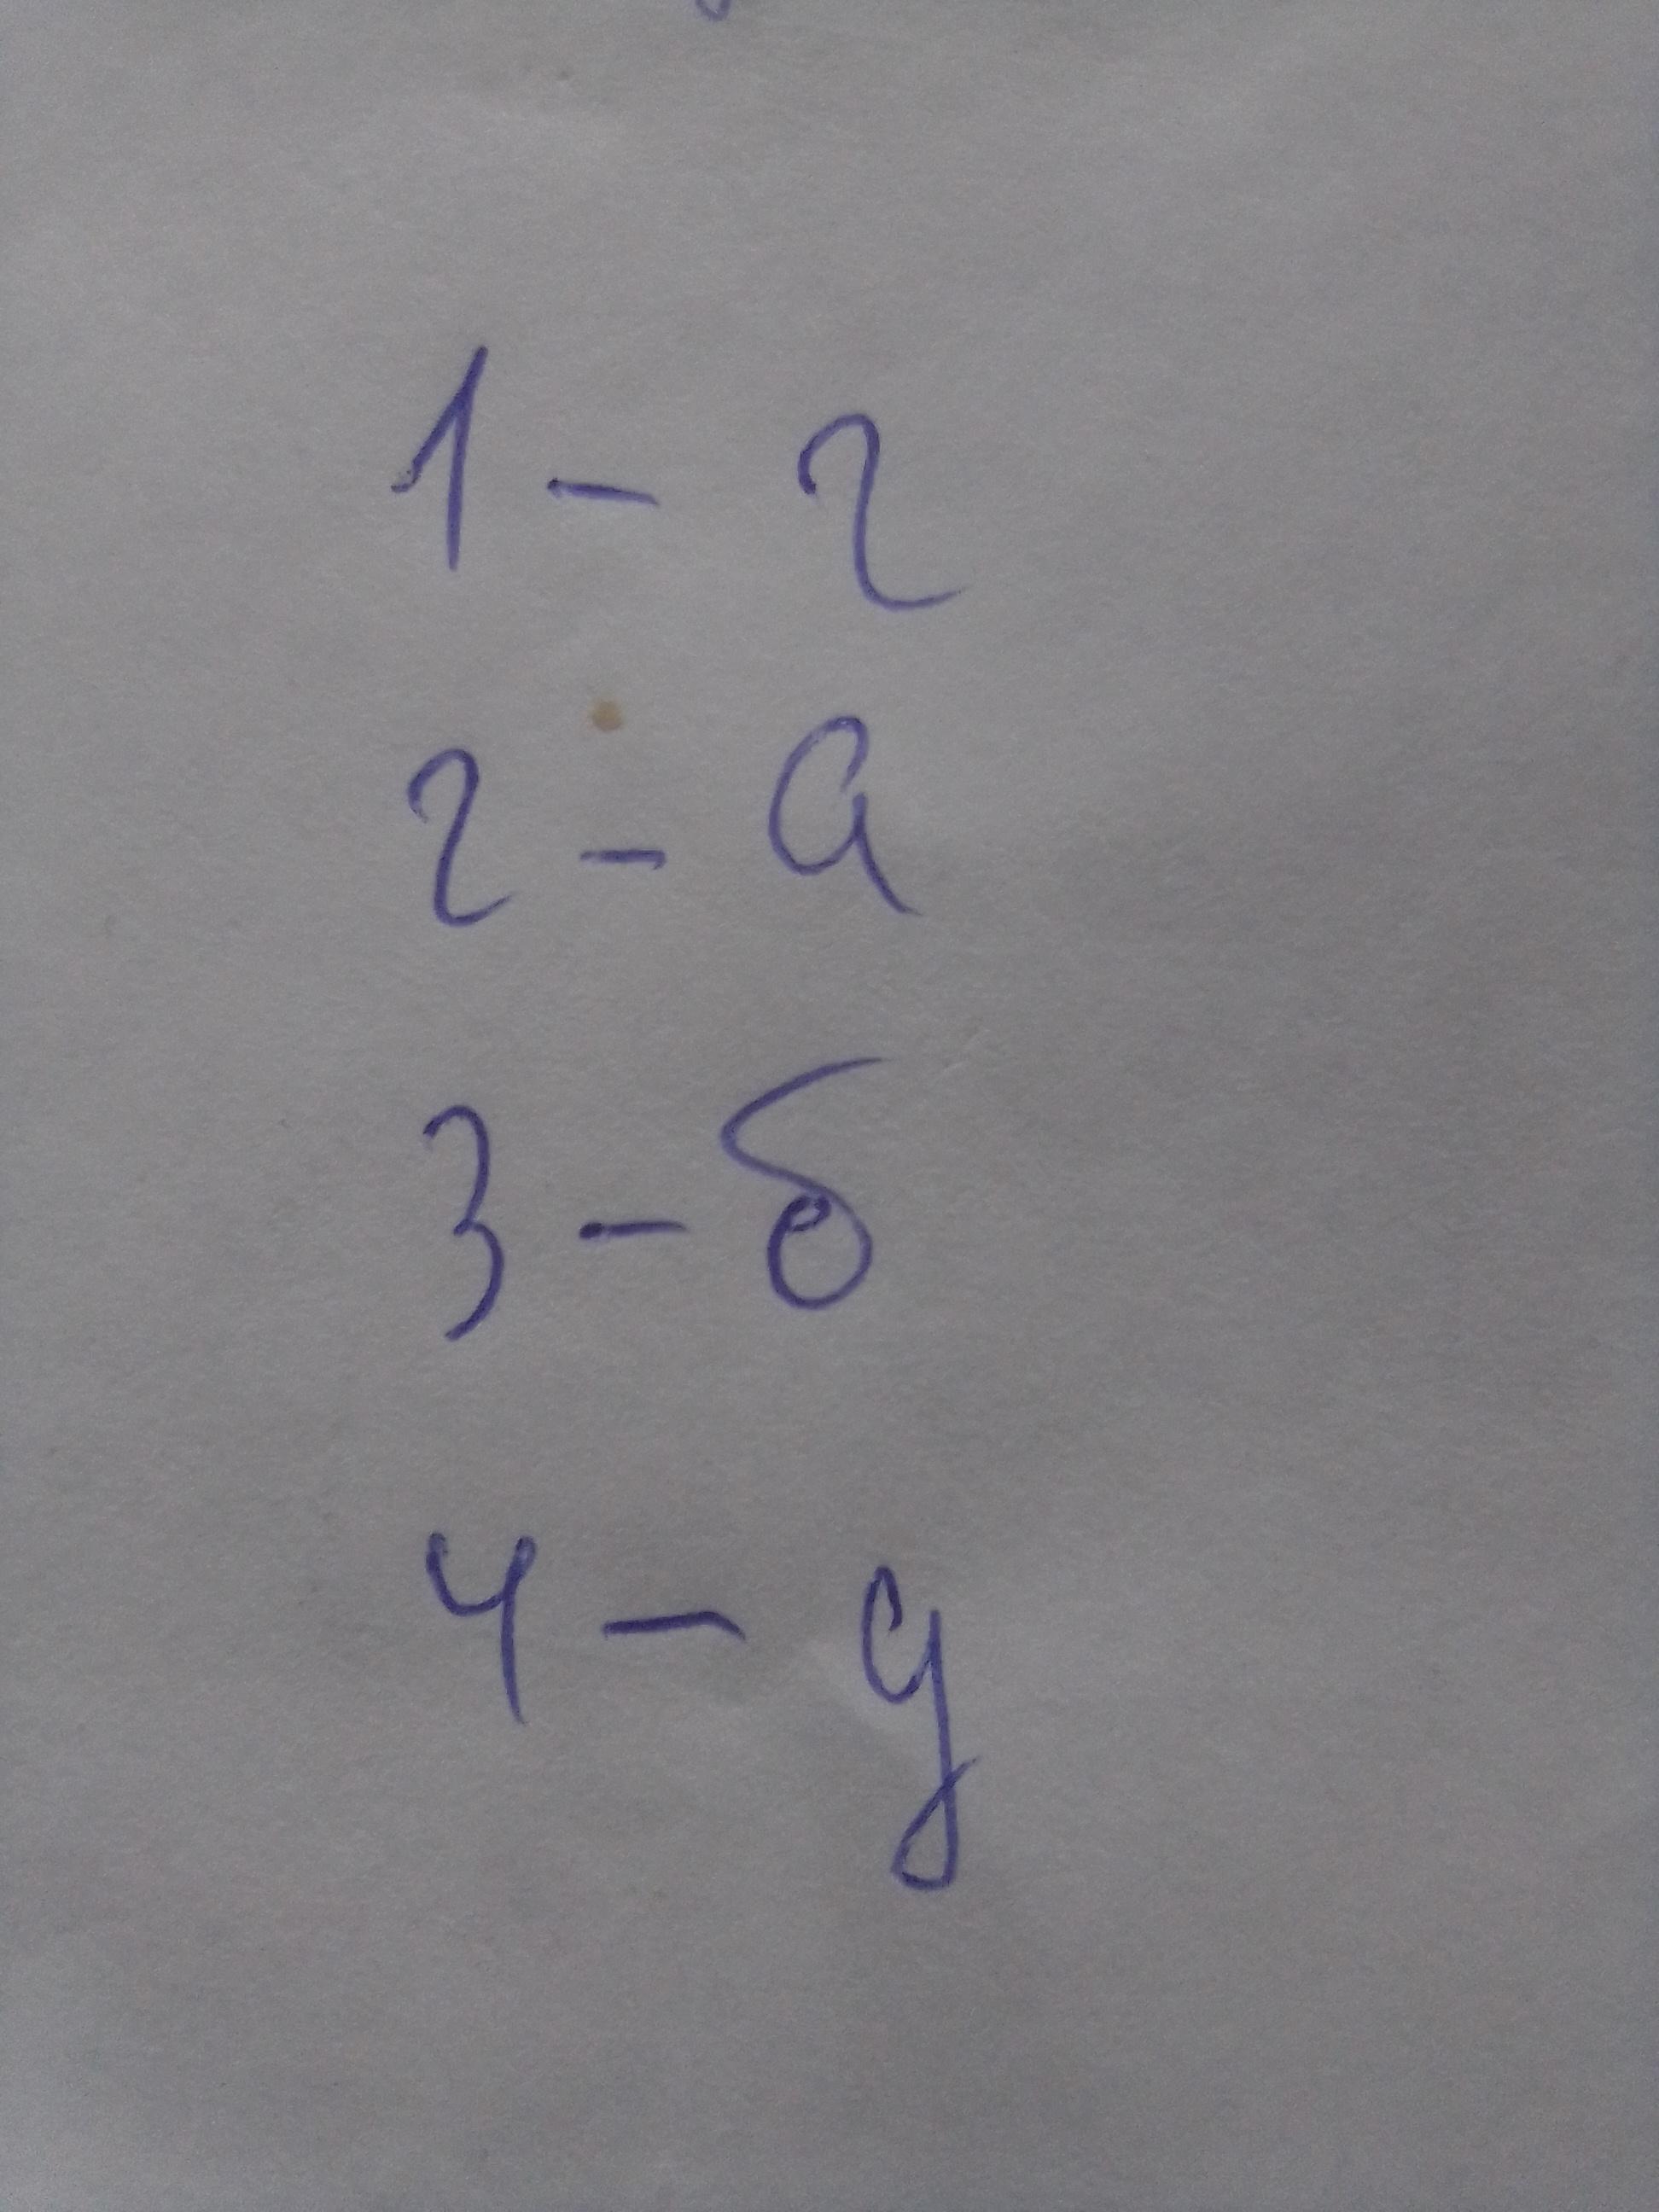 1 - г
2 - а
3 - б
4 - д